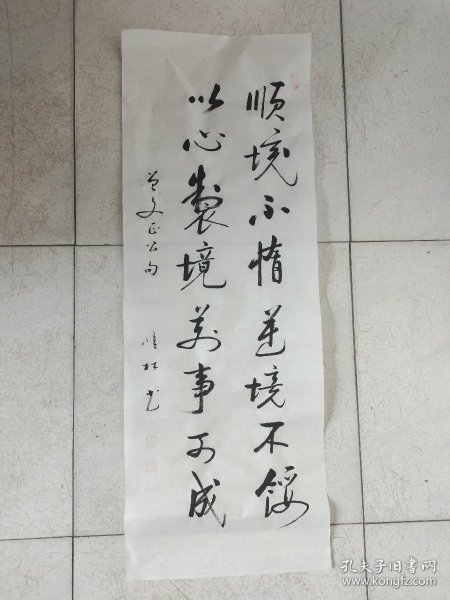 顺境不惰逆境不馁
以心製境萬事可成
曾文正公句
林书
孔夫子旧书网
www.kongfz.com